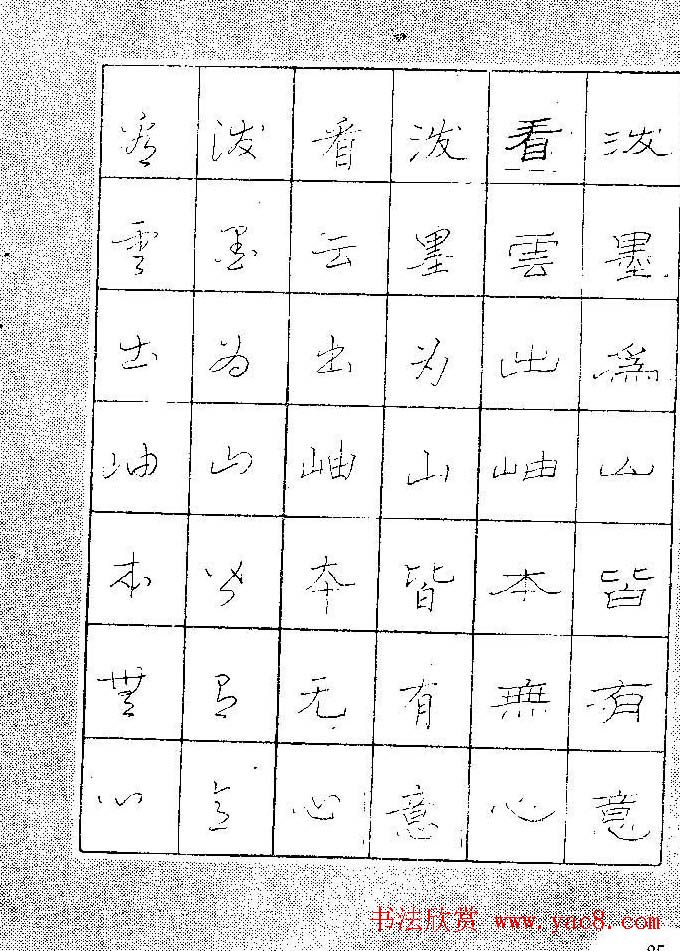 泼墨為山皆有意
看雲出岫本無心
泼墨为山皆有意
看云出岫本无心
泼墨为山皆有意
看雲出岫本無心
书法欣赏 www.yac8.com